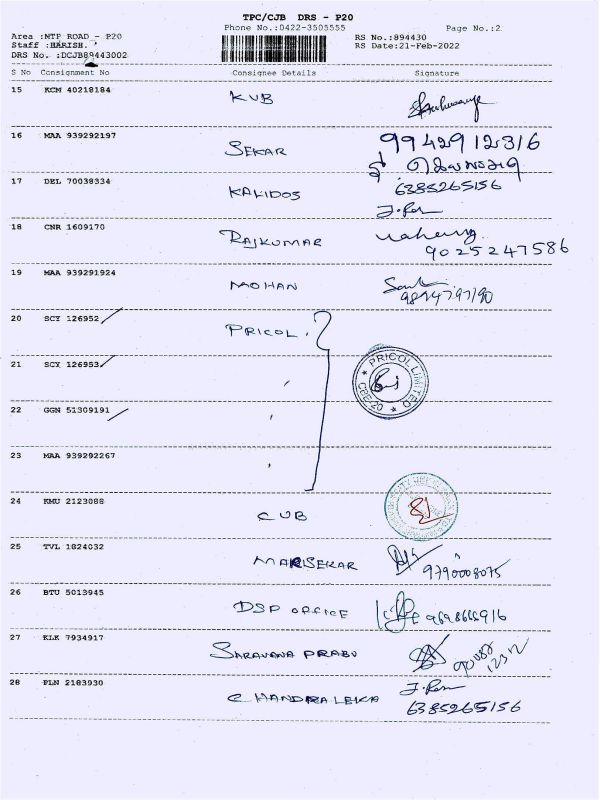 TPC/CJB DRS - P20
Phone No.:0422-3505555
Page No.:2
Area :MTP ROAD - P20
Staff :HARISH.
DRS No. :DCJB89443002
RS No.:894430
RS Date:21-Feb-2022
S No Consignment No Consignee Details Signature
15 KCM 40218184 KVB
16 MAA 939292197 SEKAR 9942912316
17 DEL 70038334 KALIDOS 6385265156
J.Ram
18 CNR 1609170 RAJKUMAR 9025247586
19 MAA 939291924 MOHAN
20 SCY 126952 PRICOL.
21 SCY 126953
PRICOL LIMITED
CBE-20
22 GGN 51309191
23 MAA 939292267
24 KMU 2123088 CUB
25 TVL 1824032 MARISEKAR 9790008075
26 BTU 5013945 DSP OFFICE
27 KLK 7934917 SARAVANA PRABU
28 PLN 2183930 CHANDRALEKA J.Ram
6385265156